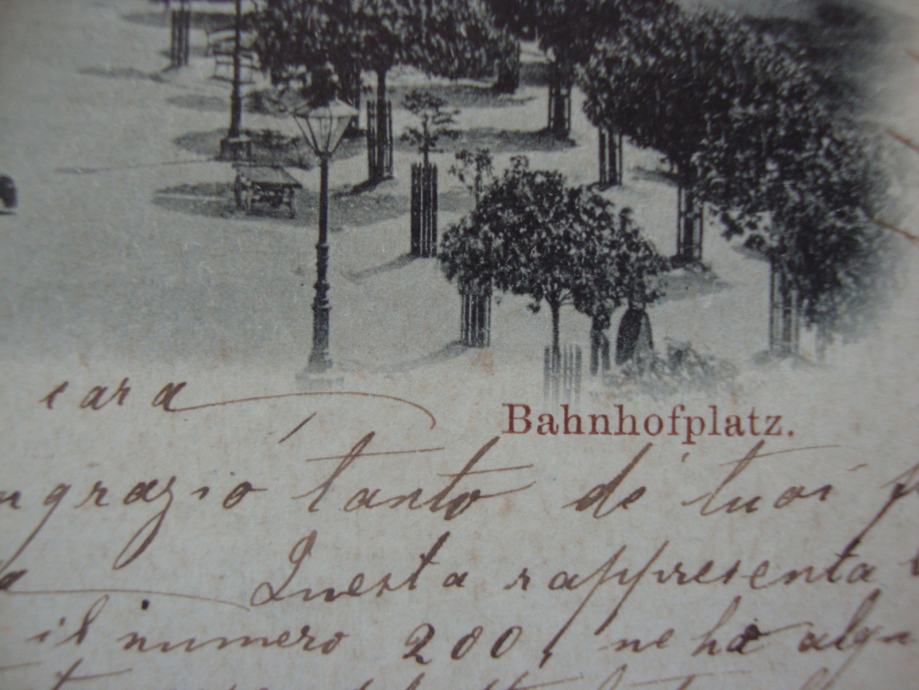 cara
Bahnhofplatz.
ngrazio tanto de' tuoi
Questa rappresenta
il numero 200, ne ho